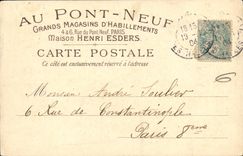 AU PONT-NEUF
GRANDS MAGASINS D'HABILLEMENTS
4 & 6, Rue du Pont-Neuf, PARIS
Maison HENRI ESDERS
CARTE POSTALE
Ce côté est exclusivement réservé à l'adresse
6
Monsieur André Soulier
6 Rue de Constantinople
Paris 8eme